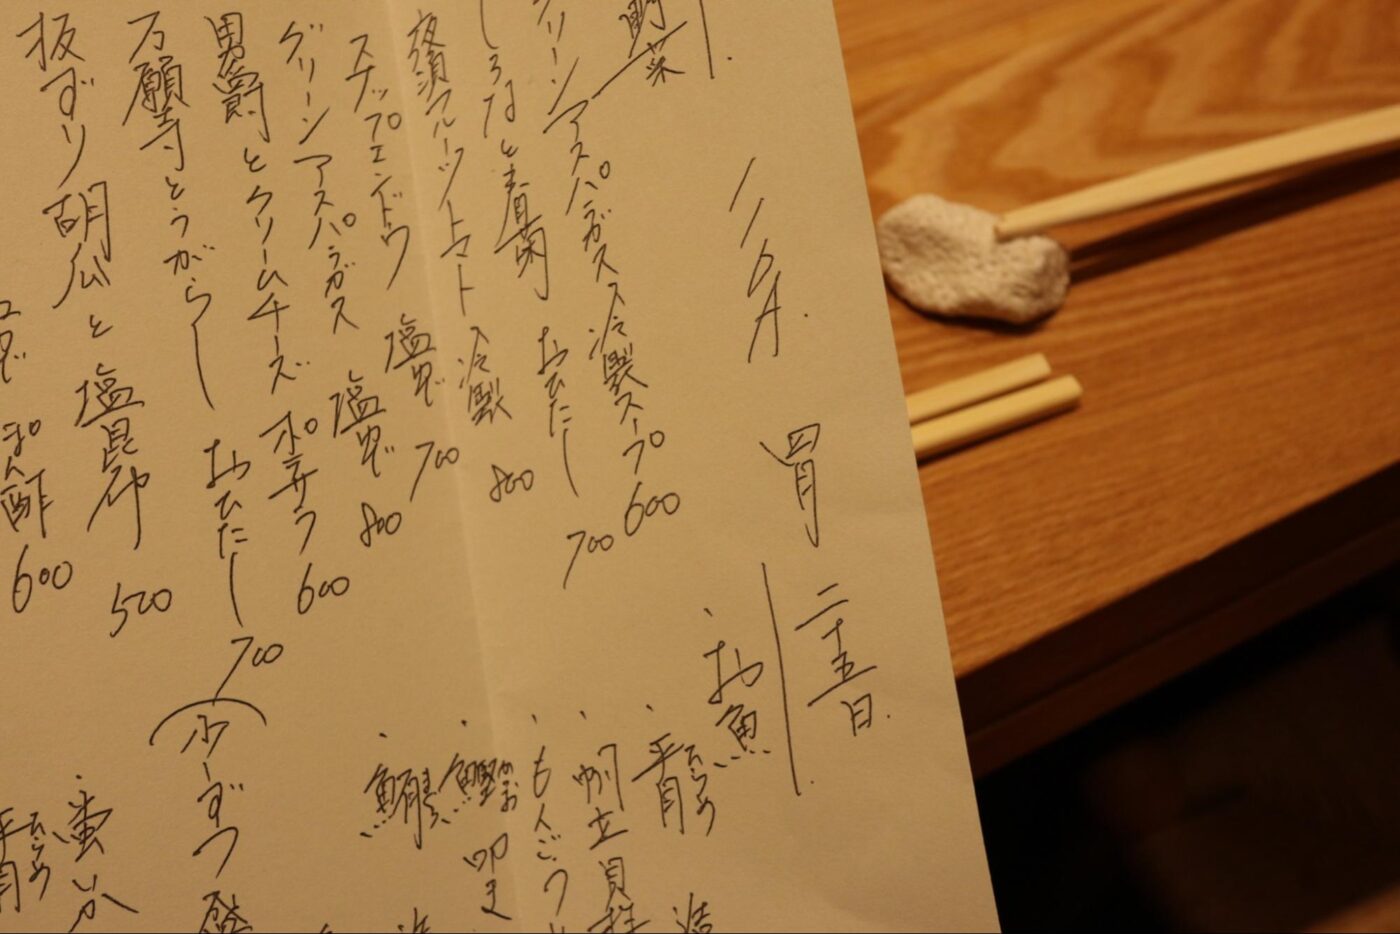 四月二十五日
野菜
グリーンアスパラガス冷製スープ 600
しろなと春菊 おひたし 700
夜須フルーツトマト 冷製 800
スナップエンドウ 塩ゆで 700
グリーンアスパラガス 塩ゆで 800
男爵とクリームチーズ ポテサラ 600
万願寺とうがらし おひたし 700
板ずり胡瓜と塩昆布 500
ぽん酢 600
お魚
平目 ひらめ
帆立貝柱
もんごう
鰹 かつお 叩き
少しずつ盛
蛍いか
平目 ひらめ